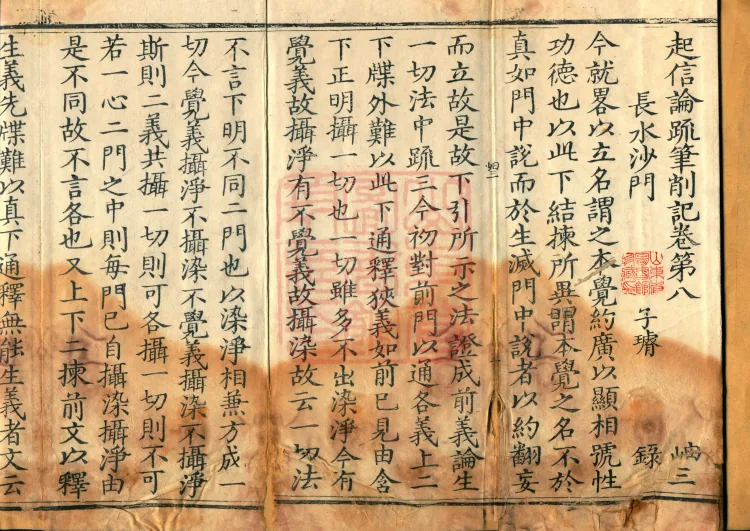 起信論疏筆削記卷第八
岫三
長水沙門 子璿 錄
今就畧以立名謂之本覺約廣以顯相號性
功德也以此下結揀所異謂本覺之名不於
真如門中說而於生滅門中說者以約翻妄
岫三
而立故是故下引所示之法證成前義論生
一切法中疏三今初對前門以通各義上二
下牒外難以此下通釋狹義如前已見由含
下正明攝一切也一切雖多不出染淨今有
覺義故攝淨有不覺義故攝染故云一切法
不言下明不同二門也以染淨相兼方成一
切今覺義攝淨不攝染不覺義攝染不攝淨
斯則二義共攝一切則可各攝一切則不可
若一心二門之中則每門已自攝染攝淨由
是不同故不言各也又上下二揀前文以釋
生義先牒難以真下通釋無能生義者文云